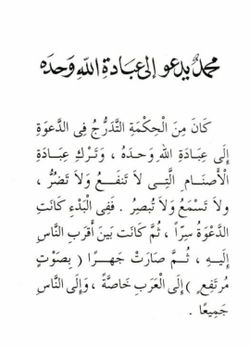 محمدٌ يدعو إلى عبادةِ اللهِ وحدَه
كَانَ مِنَ الْحِكْمَةِ التَّدَرُّجُ فِى الدَّعْوَةِ
إِلَى عِبَادَةِ اللهِ وَحْدَهُ ، وَتَرْكِ عِبَادَةِ
الْأَصْنَامِ الَّتِى لَا تَنْفَعُ وَلَا تَضُرُّ ،
وَلَا تَسْمَعُ وَلَا تُبْصِرُ . فَفِى الْبَدْءِ كَانَتِ
الدَّعْوَةُ سِرًّا ، ثُمَّ كَانَتْ بَيْنَ أَقْرَبِ النَّاسِ
إِلَيْهِ ، ثُمَّ صَارَتْ جَهْرًا ( بِصَوْتٍ
مُرْتَفِعٍ ) إِلَى الْعَرَبِ خَاصَّةً ، وَإِلَى النَّاسِ
جَمِيعًا .